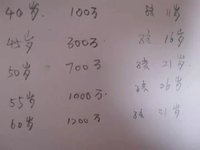 40岁 100万 孩 11岁
45岁 300万 孩 16岁
50岁 700万 孩 21岁
55岁 1000万 孩 26岁
60岁 1200万 孩 21岁